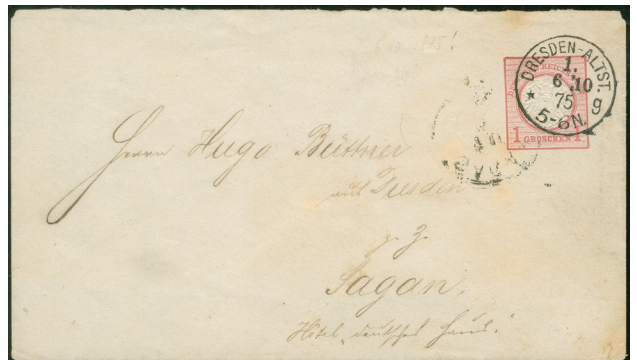 6.10.1875!
DRESDEN-ALTST.
1.
6 10
75
5-6N.
g
1 GROSCHEN 1
Herrn Hugo Büttner
aus Dresden
z. Z.
Sagan.
Hôtel „deutsches Haus."